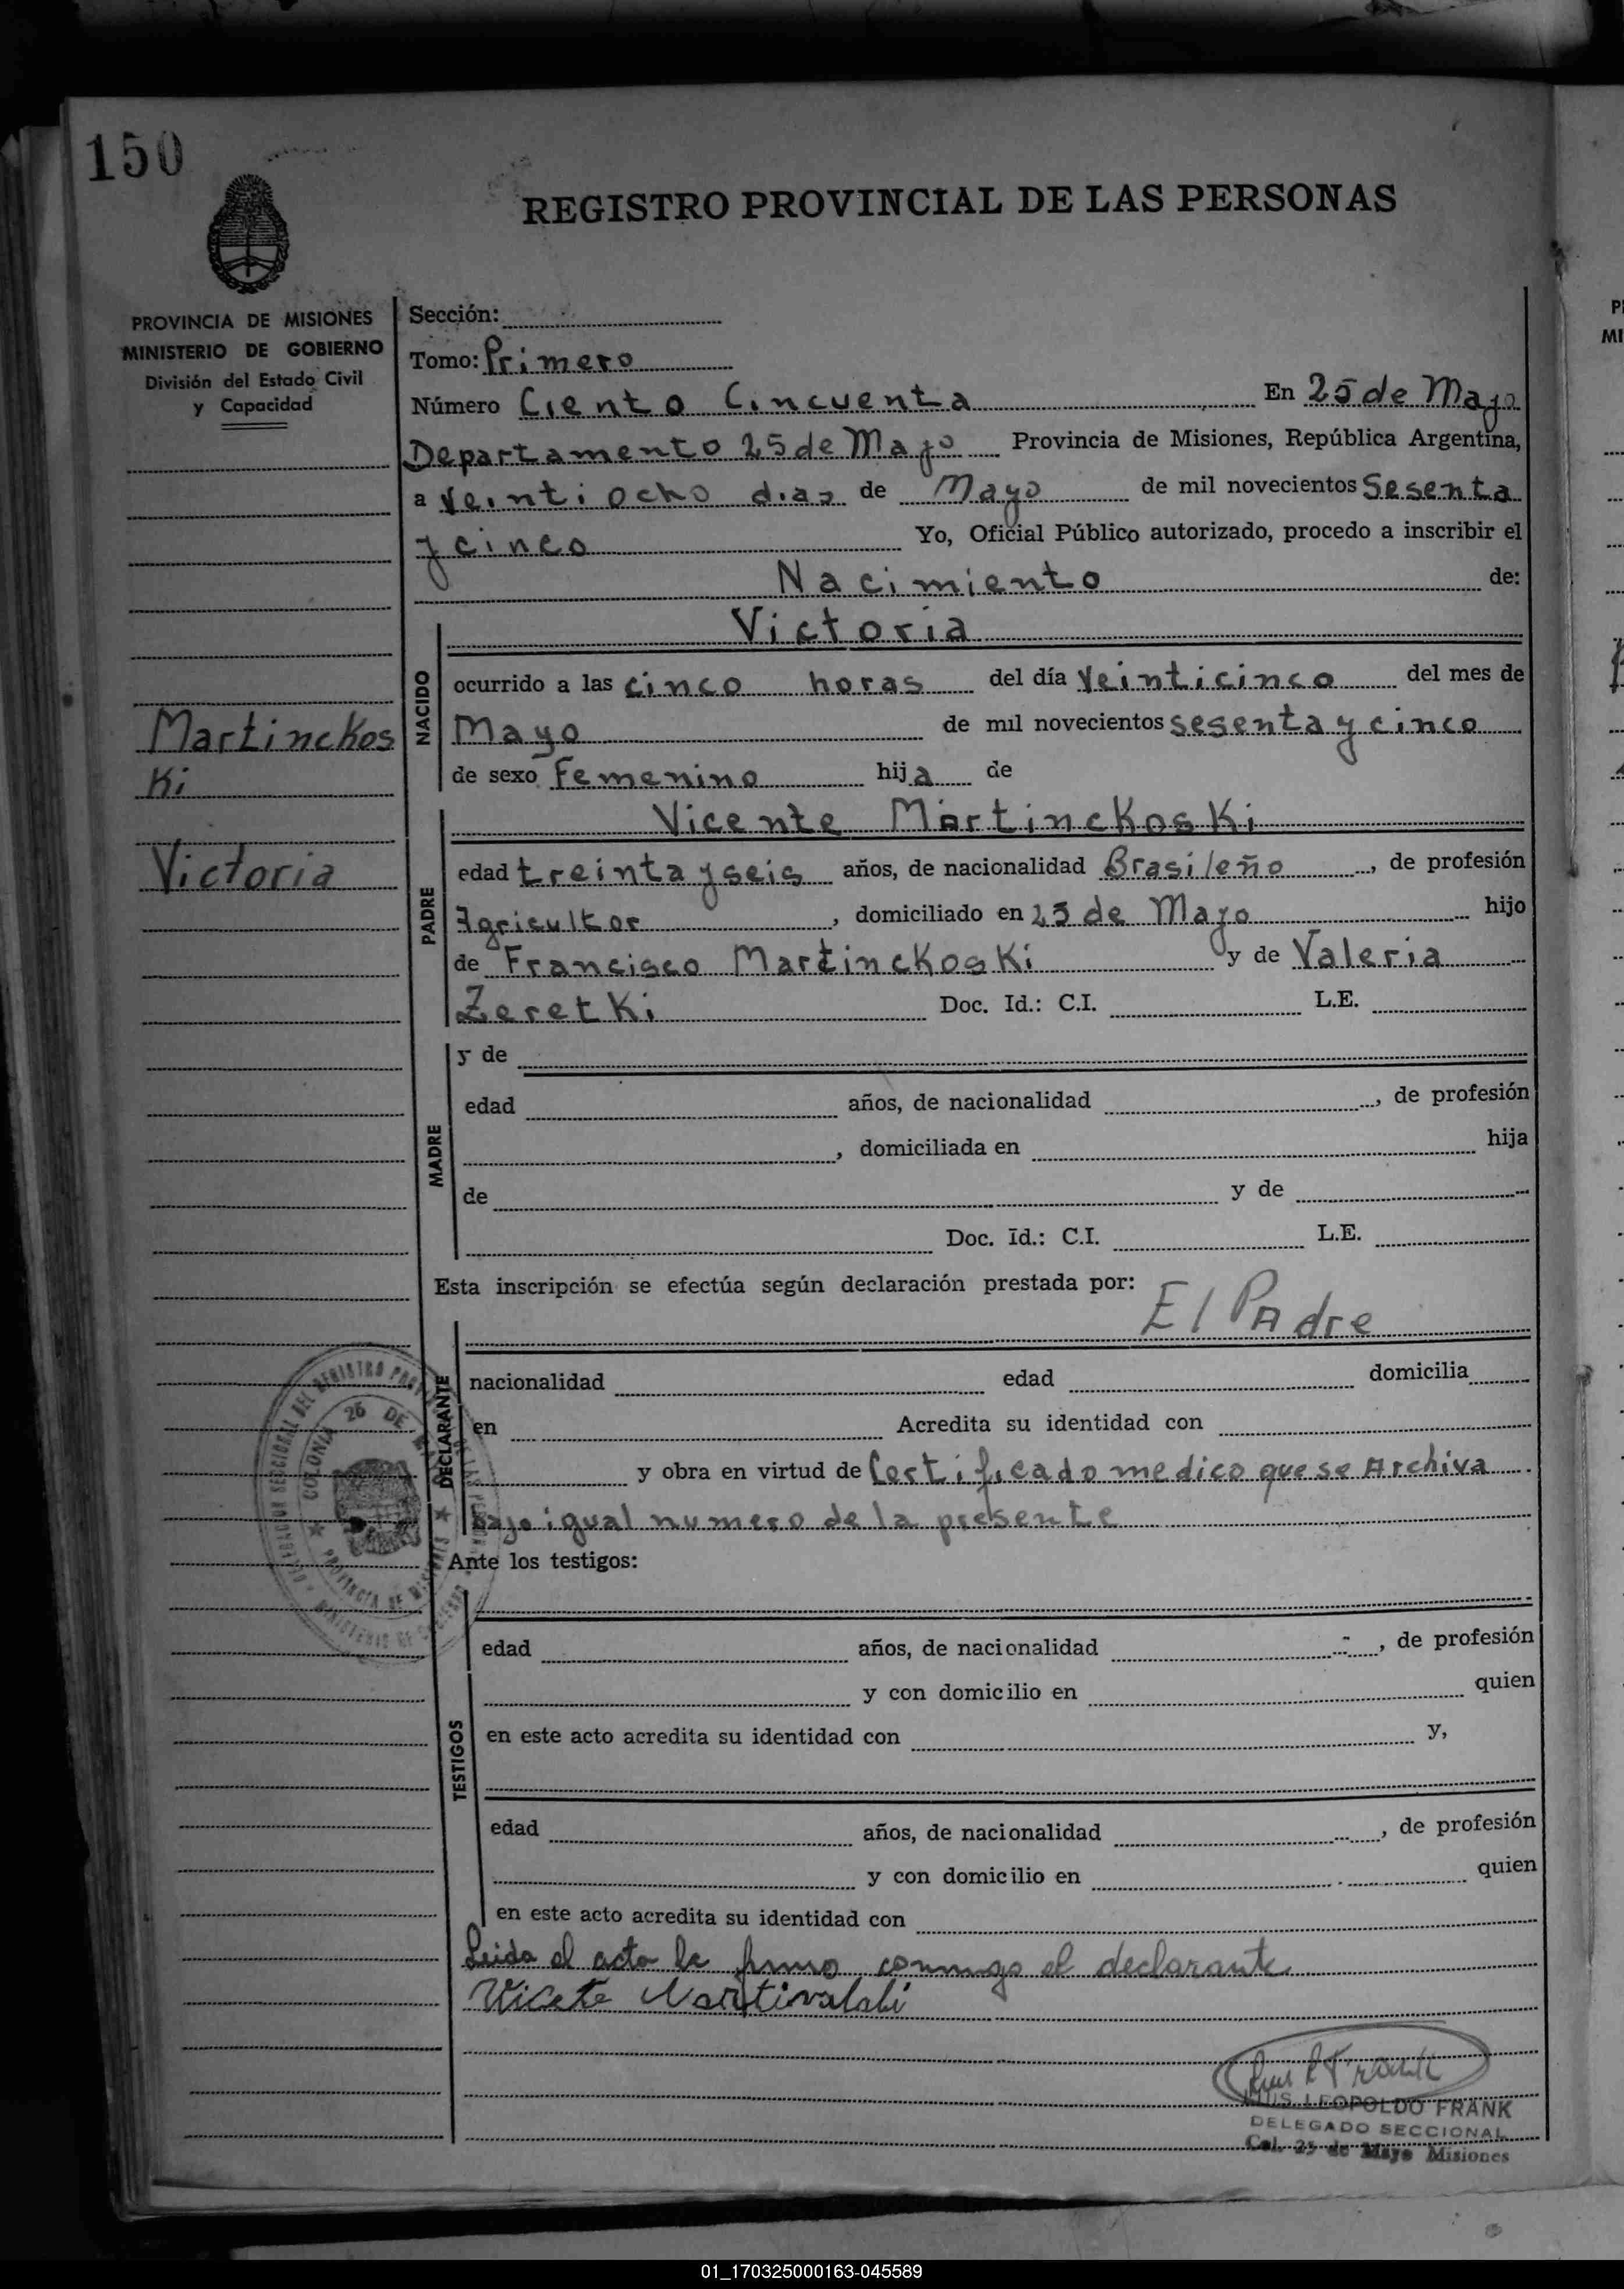 150
REGISTRO PROVINCIAL DE LAS PERSONAS
PROVINCIA DE MISIONES
MINISTERIO DE GOBIERNO
División del Estado Civil
y Capacidad
Sección:
Tomo: Primero
Número Ciento Cincuenta En 25 de Mayo
Departamento 25 de Mayo Provincia de Misiones, República Argentina,
a Veinti ocho dias de Mayo de mil novecientos Sesenta
y cinco Yo, Oficial Público autorizado, procedo a inscribir el
Nacimiento de:
Victoria
NACIDO
ocurrido a las cinco horas del día Veinticinco del mes de
Mayo de mil novecientos sesenta y cinco
de sexo Femenino hija de
Martinckos
ki
Victoria
Vicente Martinckoski
PADRE
edad treinta y seis años, de nacionalidad Brasileño, de profesión
Agricultor, domiciliado en 25 de Mayo hijo
de Francisco Martinckoski y de Valeria
Zeretki Doc. Id.: C.I. L.E.
MADRE
y de
edad años, de nacionalidad , de profesión
, domiciliada en hija
de y de
Doc. Id.: C.I. L.E.
Esta inscripción se efectúa según declaración prestada por:
El PAdre
DECLARANTE
nacionalidad edad domicilia
en Acredita su identidad con
y obra en virtud de Certificado medico que se Archiva
bajo igual numero de la presente
COLONIA 25 DE
PROVINCIA DE MISIONES
Ante los testigos:
TESTIGOS
edad años, de nacionalidad , de profesión
y con domicilio en quien
en este acto acredita su identidad con y,
edad años, de nacionalidad , de profesión
y con domicilio en quien
en este acto acredita su identidad con
Leida el acta la firmo conmigo el declarante
LUIS LEOPOLDO FRANK
DELEGADO SECCIONAL
Col. 25 de Mayo Misiones
01_170325000163-045589